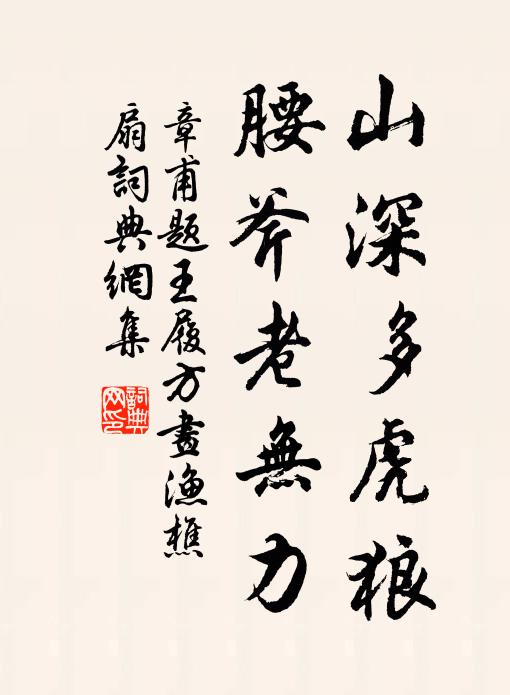 山深多虎狼
腰斧老無力
章甫題王履方畫漁樵
扇詞典網集
詞典網印